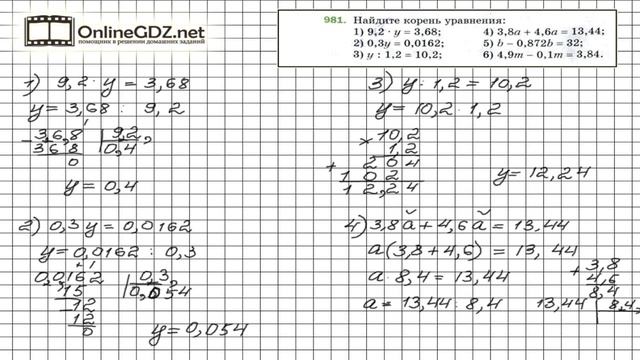 OnlineGDZ.net
помощник в решении домашних заданий
981. Найдите корень уравнения:
1) 9,2 · y = 3,68;
2) 0,3y = 0,0162;
3) y : 1,2 = 10,2;
4) 3,8a + 4,6a = 13,44;
5) b – 0,872b = 32;
6) 4,9m – 0,1m = 3,84.
1) 9,2 · y = 3,68
y = 3,68 : 9,2
36,8 | 9,2
368 0,4
0
y = 0,4
2) 0,3y = 0,0162
y = 0,0162 : 0,3
0,0162 | 0,3
15 0,054
12
12
0
y = 0,054
3) y : 1,2 = 10,2
y = 10,2 · 1,2
× 10,2
1,2
+ 204
102
12,24
y = 12,24
4) 3,8a + 4,6a = 13,44
a(3,8 + 4,6) = 13,44
a · 8,4 = 13,44
a = 13,44 : 8,4
+ 3,8
4,6
8,4
13,44 | 8,4